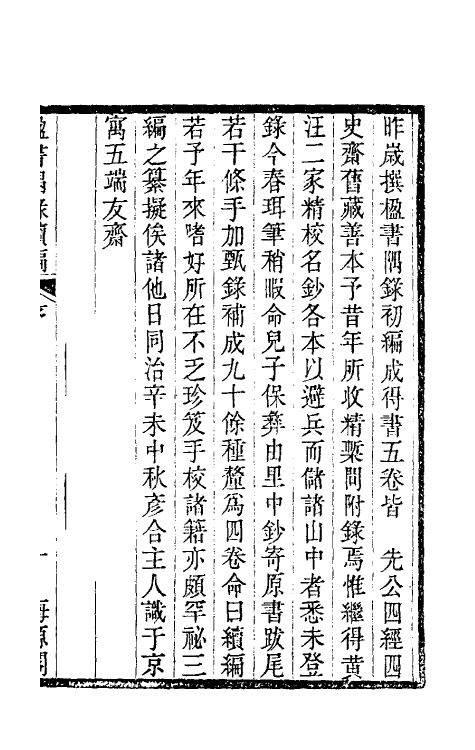 昨歲撰楹書隅錄初編成得書五卷皆　先公四經四
史齋舊藏善本予昔年所收精槧間附錄焉惟繼得黃
汪二家精校名鈔各本以避兵而儲諸山中者悉未登
錄今春珥筆稍暇命兒子保彝由里中鈔寄原書跋尾
若干條手加甄錄補成九十餘種釐爲四卷命曰續編
若予年來嗜好所在不乏珍笈手校諸籍亦頗罕祕三
編之纂擬俟諸他日同治辛未中秋彥合主人識于京
寓五端友齋
楹書隅錄續編　序　一　海源閣